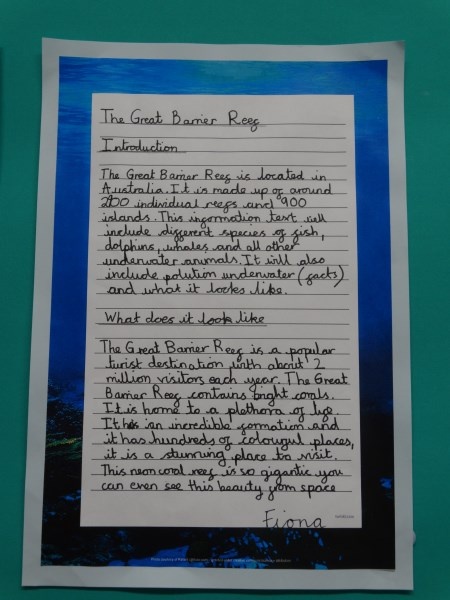 The Great Barrier Reef
Introduction
The Great Barrier Reef is located in
Australia. It is made up of around
2900 individual reefs and 900
islands. This information text will
include different species of fish,
dolphins, whales and all other
underwater animals. It will also
include polution underwater (facts)
and what it looks like.
What does it look like
The Great Barrier Reef is a popular
turist destination with about 2
million visitors each year. The Great
Barrier Reef contains bright corals.
It is home to a plethora of life.
It has an incredible formation and
it has hundreds of colourful places,
it is a stunning place to visit.
This neon coral reef is so gigantic you
can even see this beauty from space
Fiona